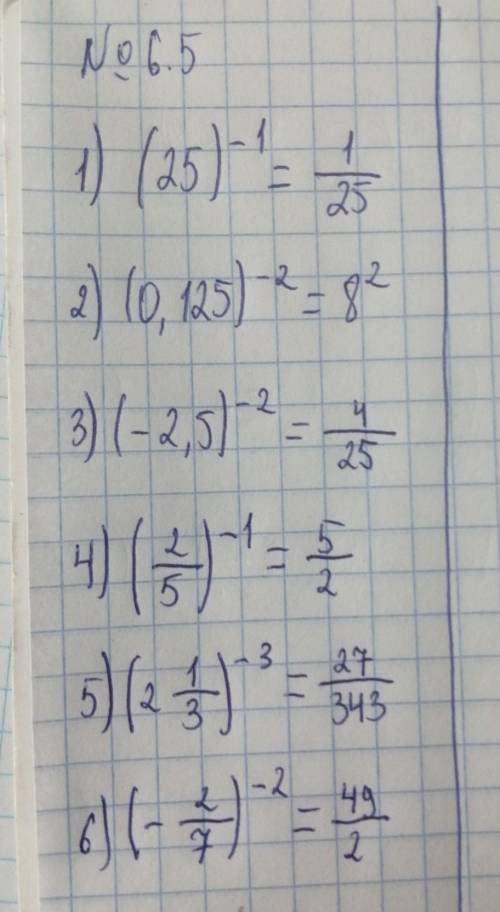 № 6.5
1) (25)^-1 = 1/25
2) (0,125)^-2 = 8^2
3) (-2,5)^-2 = 4/25
4) (2/5)^-1 = 5/2
5) (2 1/3)^-3 = 27/343
6) (-2/7)^-2 = 49/2